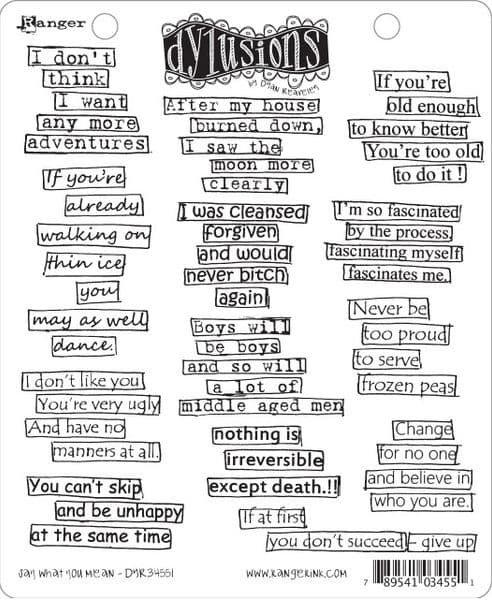 Ranger
dylusions
by Dyan Reaveley
I don't
think
I want
any more
adventures
If you're
already
walking on
thin ice
you
may as well
dance.
I don't like you
You're very ugly
And have no
manners at all.
You can't skip
and be unhappy
at the same time
After my house
burned down,
I saw the
moon more
clearly
I was cleansed
forgiven
and would
never bitch
again
Boys will
be boys
and so will
a lot of
middle aged men
nothing is
irreversible
except death.!!
If at first
you don't succeed - give up
If you're
old enough
to know better
You're too old
to do it!
I'm so fascinated
by the process
fascinating myself
fascinates me.
Never be
too proud
to serve
frozen peas
Change
for no one
and believe in
who you are.
Say What You Mean - DYR34551
www.RANGERINK.COM
7 89541 03455 1